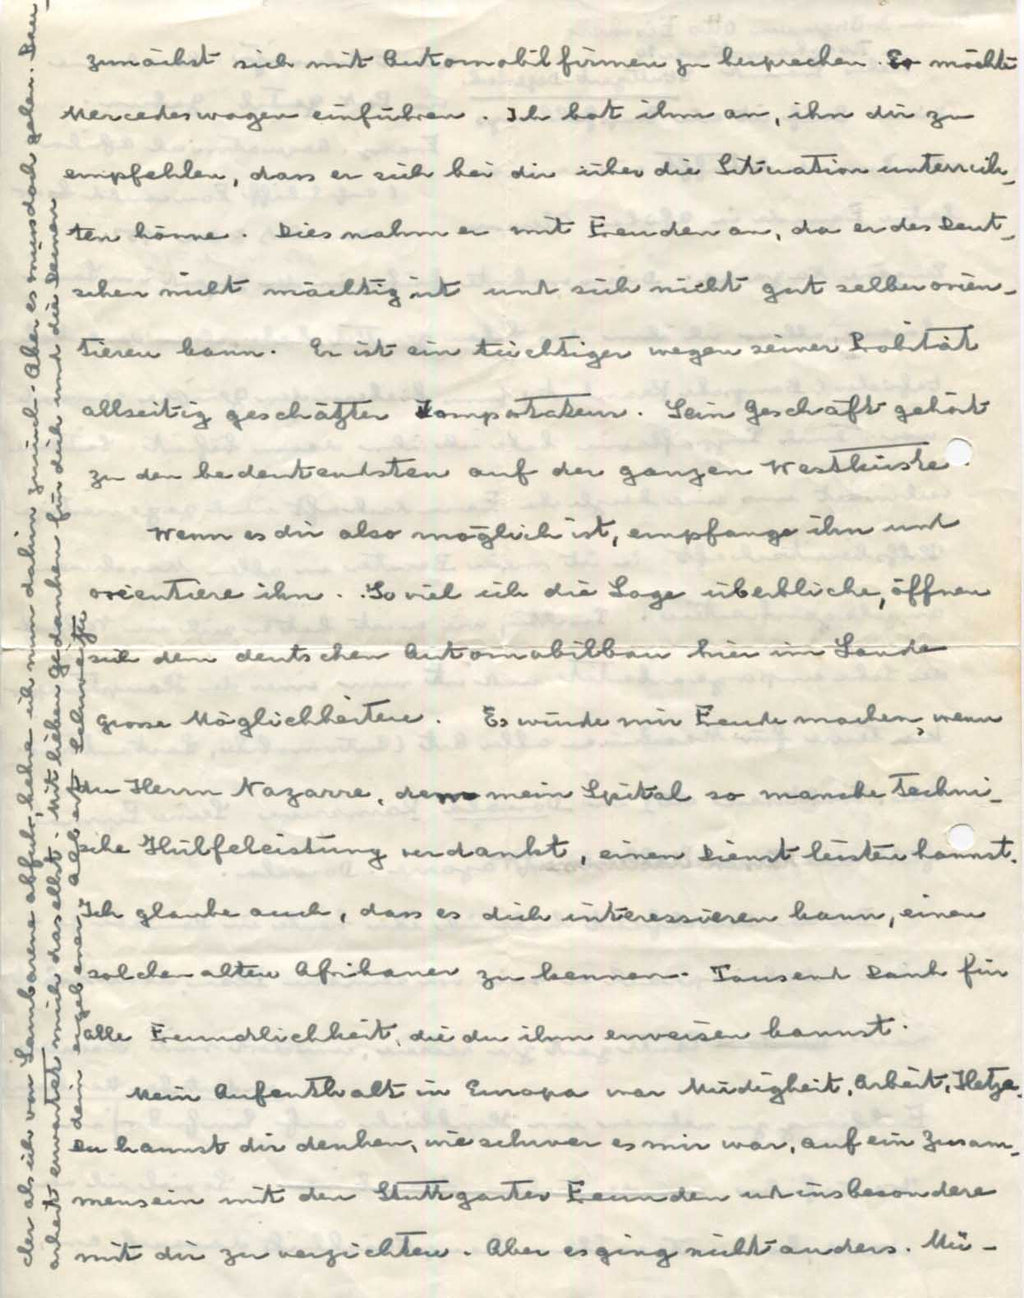 zunächst sich mit Automobilfirmen zu besprechen. Er möchte
Mercedeswagen einführen. Ich bot ihm an, ihn dir zu
empfehlen, dass er sich bei dir über die Situation unterrich-
ten könne. Dies nahm er mit Freuden an, da er des Deut-
schen nicht mächtig ist und sich nicht gut selber orien-
tieren kann. Er ist ein tüchtiger wegen seiner Probität
allseitig geschätzter. Sein Geschäft gehört
zu den bedeutendsten auf der ganzen Westküste.
Wenn es dir also möglich ist, empfange ihn und
orientiere ihn. So viel ich die Lage überblicke, öffnen
sich dem deutschen Automobilbau hier im Lande
grosse Möglichkeiten. Es würde mir Freude machen, wenn
du Herrn Nazarre, dem mein Spital so manche techni-
sche Hülfeleistung verdankt, einen Dienst leisten kannst.
Ich glaube auch, dass es dich interessieren kann, einen
solchen alten Afrikaner zu kennen. Tausend Dank für
alle Freundlichkeit, die du ihm erweisen kannst.
Mein Aufenthalt in Europa war Müdigkeit, Arbeit, Hetze.
Du kannst dir denken, wie schwer es mir war, auf ein Zusam-
mensein mit den Stuttgarter Freunden ud insbesondere
mit dir zu verzichten. Aber es ging nicht anders. Mü-
der als ich von Lambarene abfuhr, kehre ich nun dahin zurück. Aber es muss doch gehen. Denn
Arbeit erwartet mich daselbst. Mit lieben Gedanken für dich und die Deinen
dein ergebener Albert Schweitzer